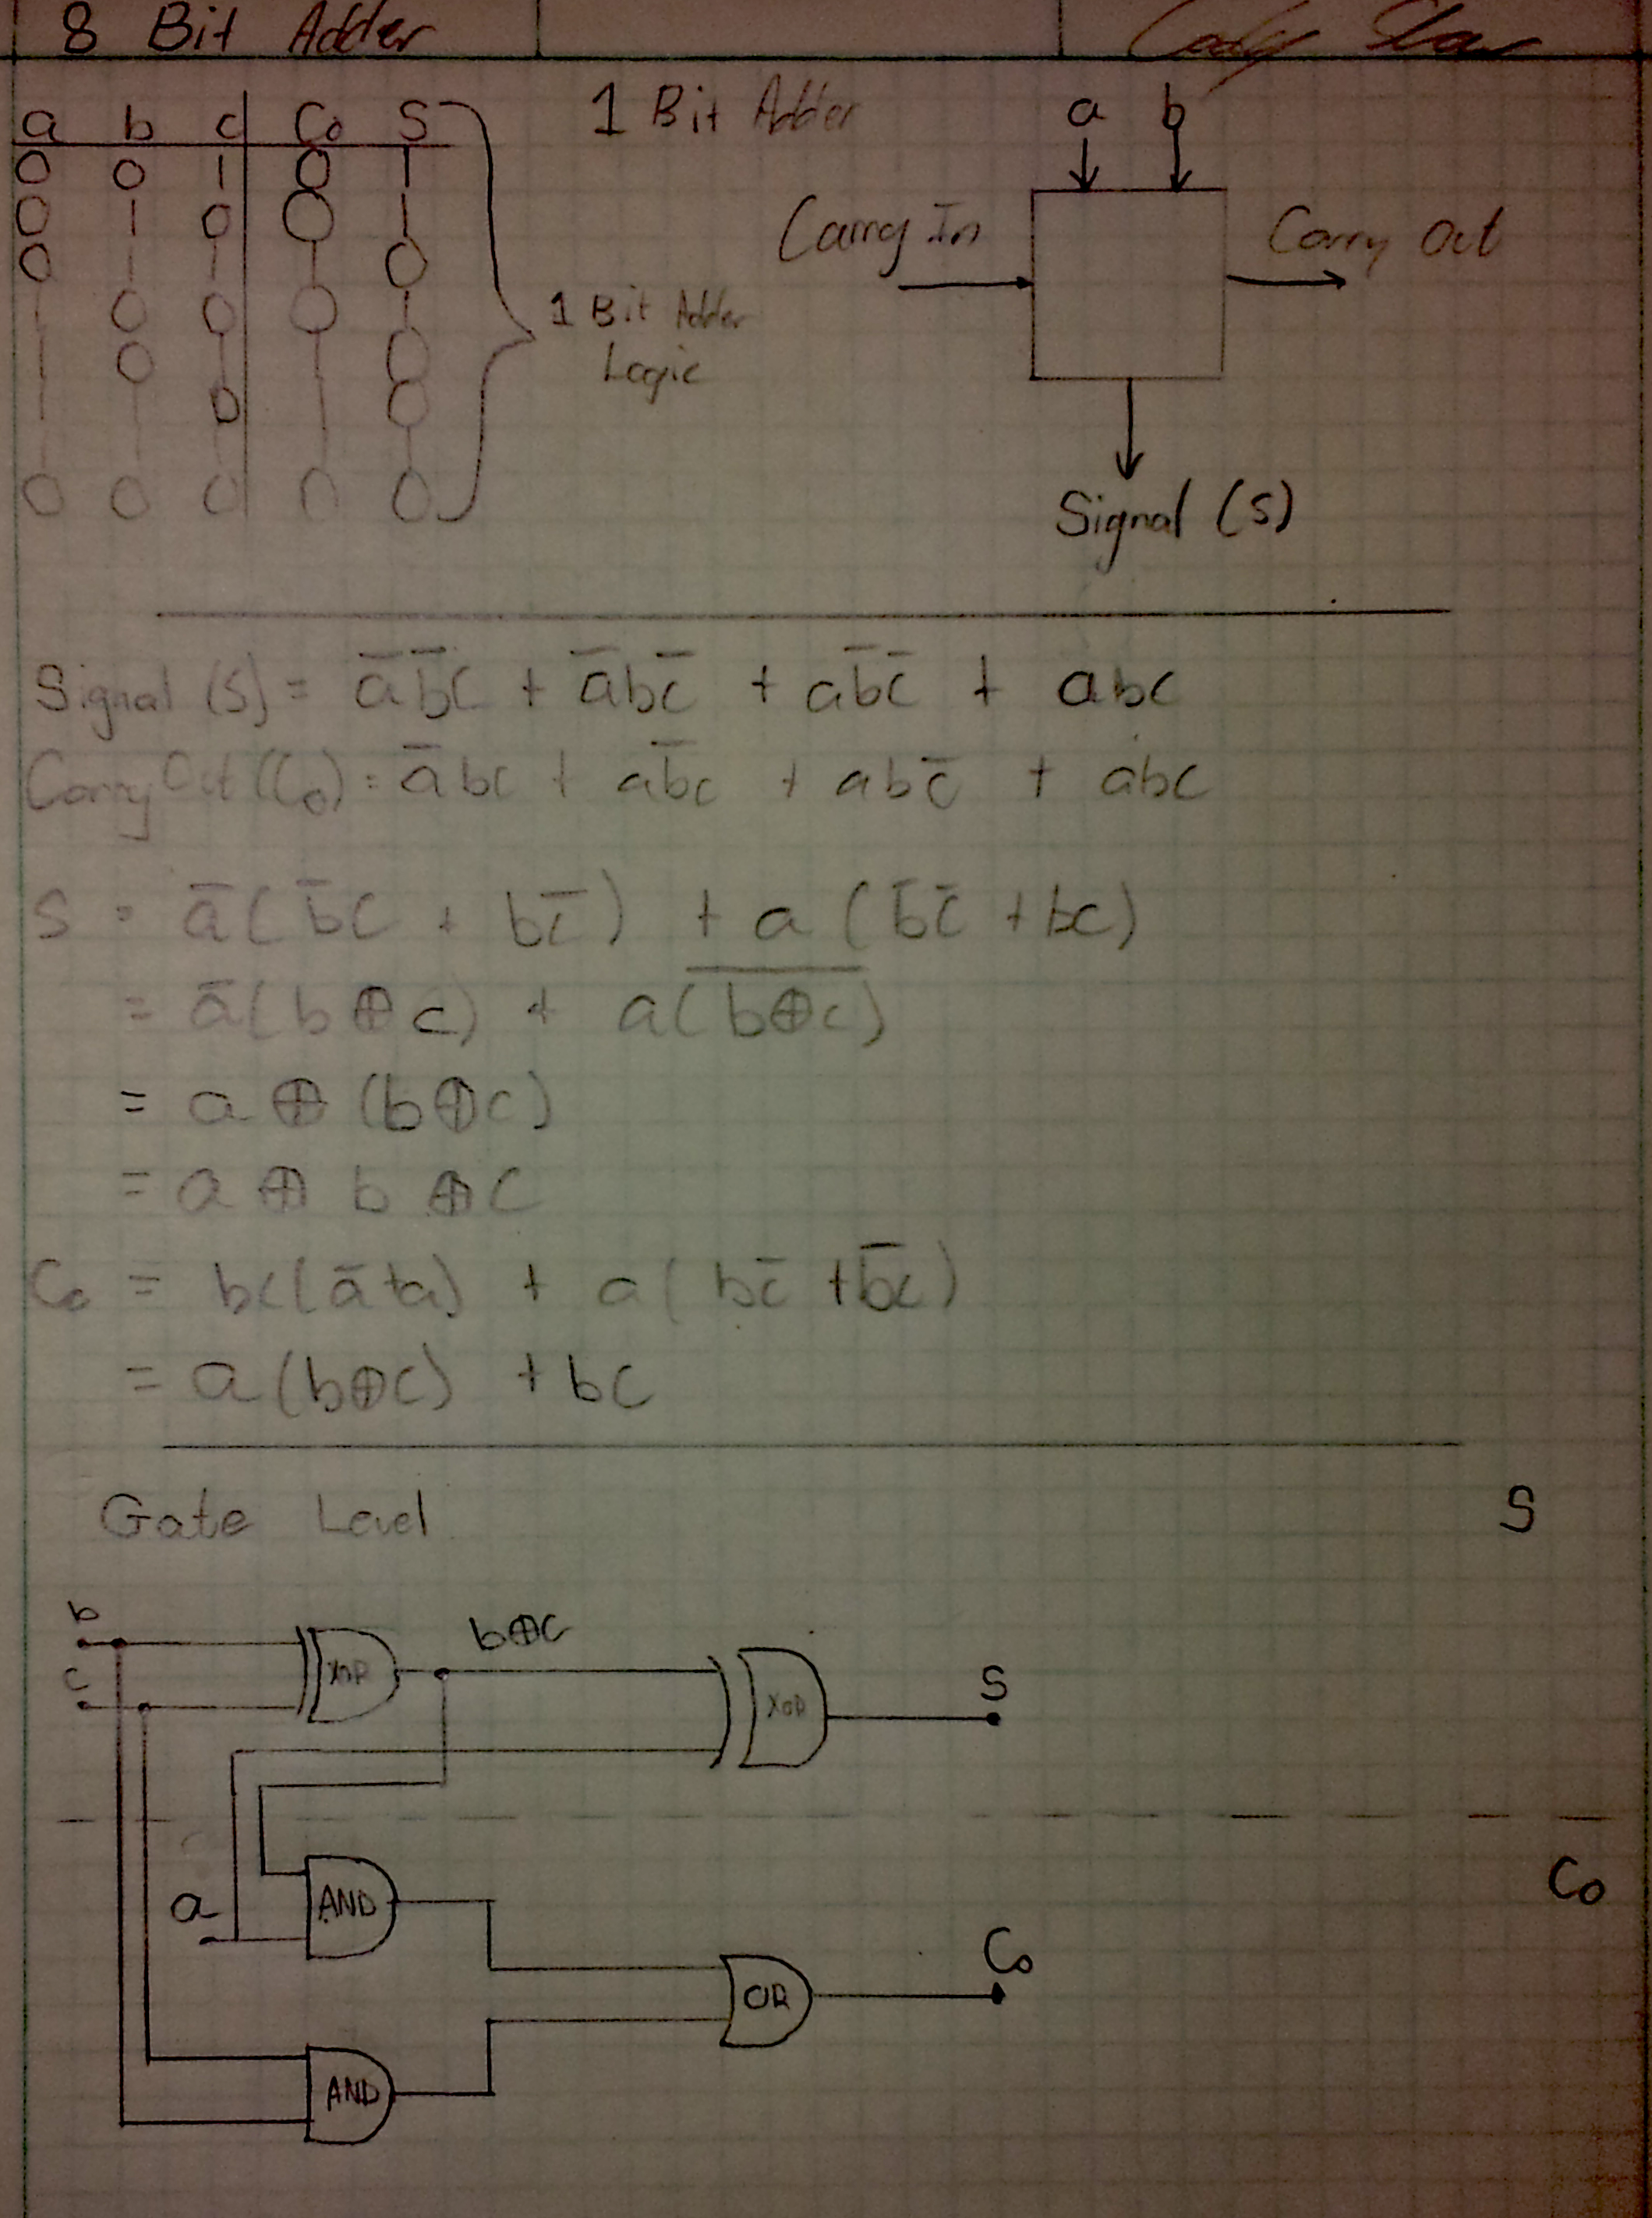 8 Bit Adder
a b c Co S
0 0 1 0 1
0 1 0 0 1
0 1 1 1 0
1 0 0 0 1
1 0 1 1 0
1 1 0 1 0
1 1 1 1 1
0 0 0 0 0
1 Bit Adder
Logic
1 Bit Adder
a b
Carry In
Carry Out
Signal (S)
Signal (S) = a̅b̅c + a̅bc̅ + ab̅c̅ + abc
Carry Out (Co) = a̅bc + ab̅c + abc̅ + abc
S = a̅(b̅c + bc̅) + a(b̅c̅ + bc)
= a̅(b⊕c) + a(b̅⊕̅c̅)
= a ⊕ (b⊕c)
= a ⊕ b ⊕ c
Co = bc(a̅+a) + a(bc̅ + b̅c)
= a(b⊕c) + bc
Gate Level
S
b
c
XOR
b⊕c
XOR
S
a
AND
Co
AND
OR
Co